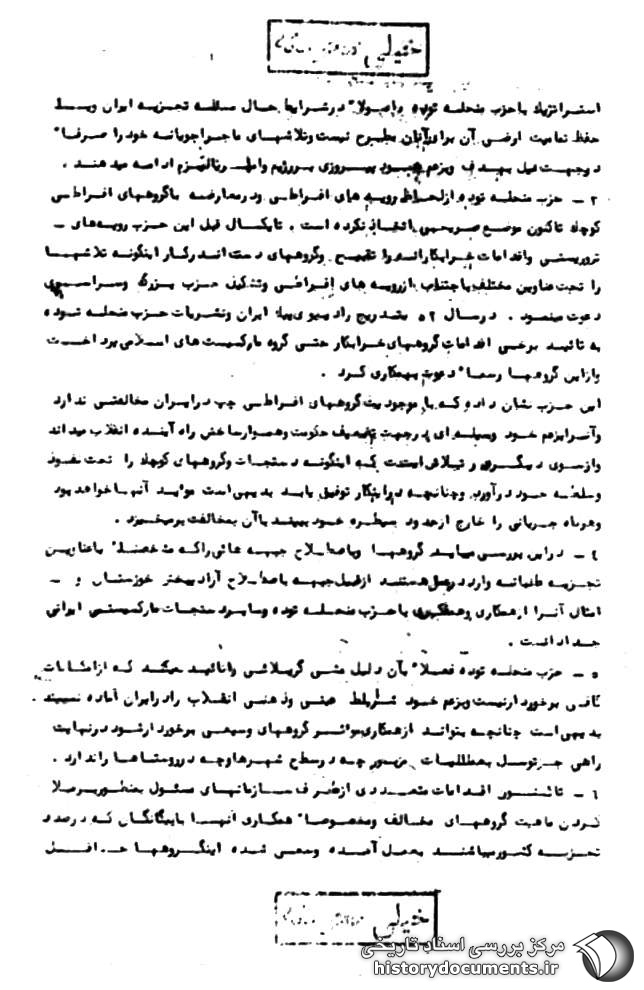 خیلی
استراتژیک با حزب منحله توده واصولا" در شرایط حال مسئله تجزیه ایران ویا
حفظ تمامیت ارضی آن برای آنان مطرح نیست وتلاشهای ماجراجویانه خود را صرفا"
درجهت نیل بهدف ویژه خود پیروزی بر رژیم و ادامه میدهند .
حزب منحله توده ازلحاظ رویه های افراطی ودرمعارضه باگروههای افراطی
کوچک تاکنون موضع صریحی اتخاذ نکرده است . تا یکسال قبل این حزب رویه‌های -
تروریستی واقدامات خرابکارانه را تقبیح وگروههای دست اندرکار اینگونه تلاشها
را تحت عناوین مختلف باجتناب ازرویه های افراطی وتشکیل حزب بزرگ وسراسری
دعوت مینمود . درسال ۵۲ بتدریج رادیوی پیک ایران ونشریات حزب منحله توده
به تائید برخی اقدامات گروههای خرابکار حتی گروه مارکسیست های اسلامی پرداخت
وازاین گروهها رسما" دعوت بهمکاری کرد .
این حزب نشان داده که با موجودیت گروههای افراطی چپ درایران مخالفتی ندارد
وآنرا بزعم خود وسیله ای درجهت تضعیف حکومت وهموار ساختن راه آینده انقلاب میداند
وازسوی دیگر در تلاش است که اینگونه دستجات وگروههای کوچک را تحت نفوذ
وسلطه خود درآورد وچنانچه دراینکار توفیق یابد بدیهی است موید آنها خواهد بود
وهرگاه جریانی را خارج ازحدود سیطره خود ببیند باآن بمخالفت برمیخیزد .
٤ - دراین بررسی میباید گروهها وباصطلاح جبهه هائی راکه مشخصا" باعناوین
تجزیه طلبانه وارد درعمل هستند ازقبیل جبهه باصطلاح آزادیبخش خوزستان و -
امثال آنرا ازهمکاری وهمفکری با حزب منحله توده وسایر دستجات مارکسیستی ایرانی
جدا دانست .
۵ - حزب منحله توده فعلا" بآن دلیل مشی گریلائی را تائید میکند که ازامکانات
کافی برخوردار نیست وبزعم خود شرایط عینی وذهنی انقلاب را درایران آماده نمیبیند .
بدیهی است چنانچه بتواند ازهمکاری موثر گروههای وسیعی برخوردار شود درنهایت
راهی جز توسل بعملیات مزبور چه در سطح شهرها وچه در روستاها را ندارد .
٦ - تاکنون اقدامات متعددی ازطرف سازمانهای مسئول بمنظور برملا
کردن ماهیت گروههای مخالف ومخصوصا" همکاری آنها بابیگانگان که درصدد
تجزیه کشور میباشند بعمل آمده وسعی شده اینگروهها حداقل
خیلی
مرکز بررسی اسناد تاریخی
historydocuments.ir